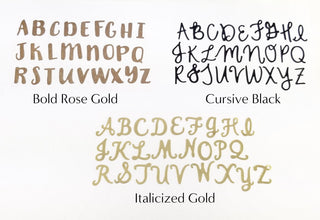 ABCDEFGHI
JKLMNOPQ
RSTUVWXYZ
Bold Rose Gold
ABCDEFGHI
JKLMNOPQ
RSTUVWXYZ
Cursive Black
ABCDEFGHI
JKLMNOPQ
RSTUVWXYZ
Italicized Gold